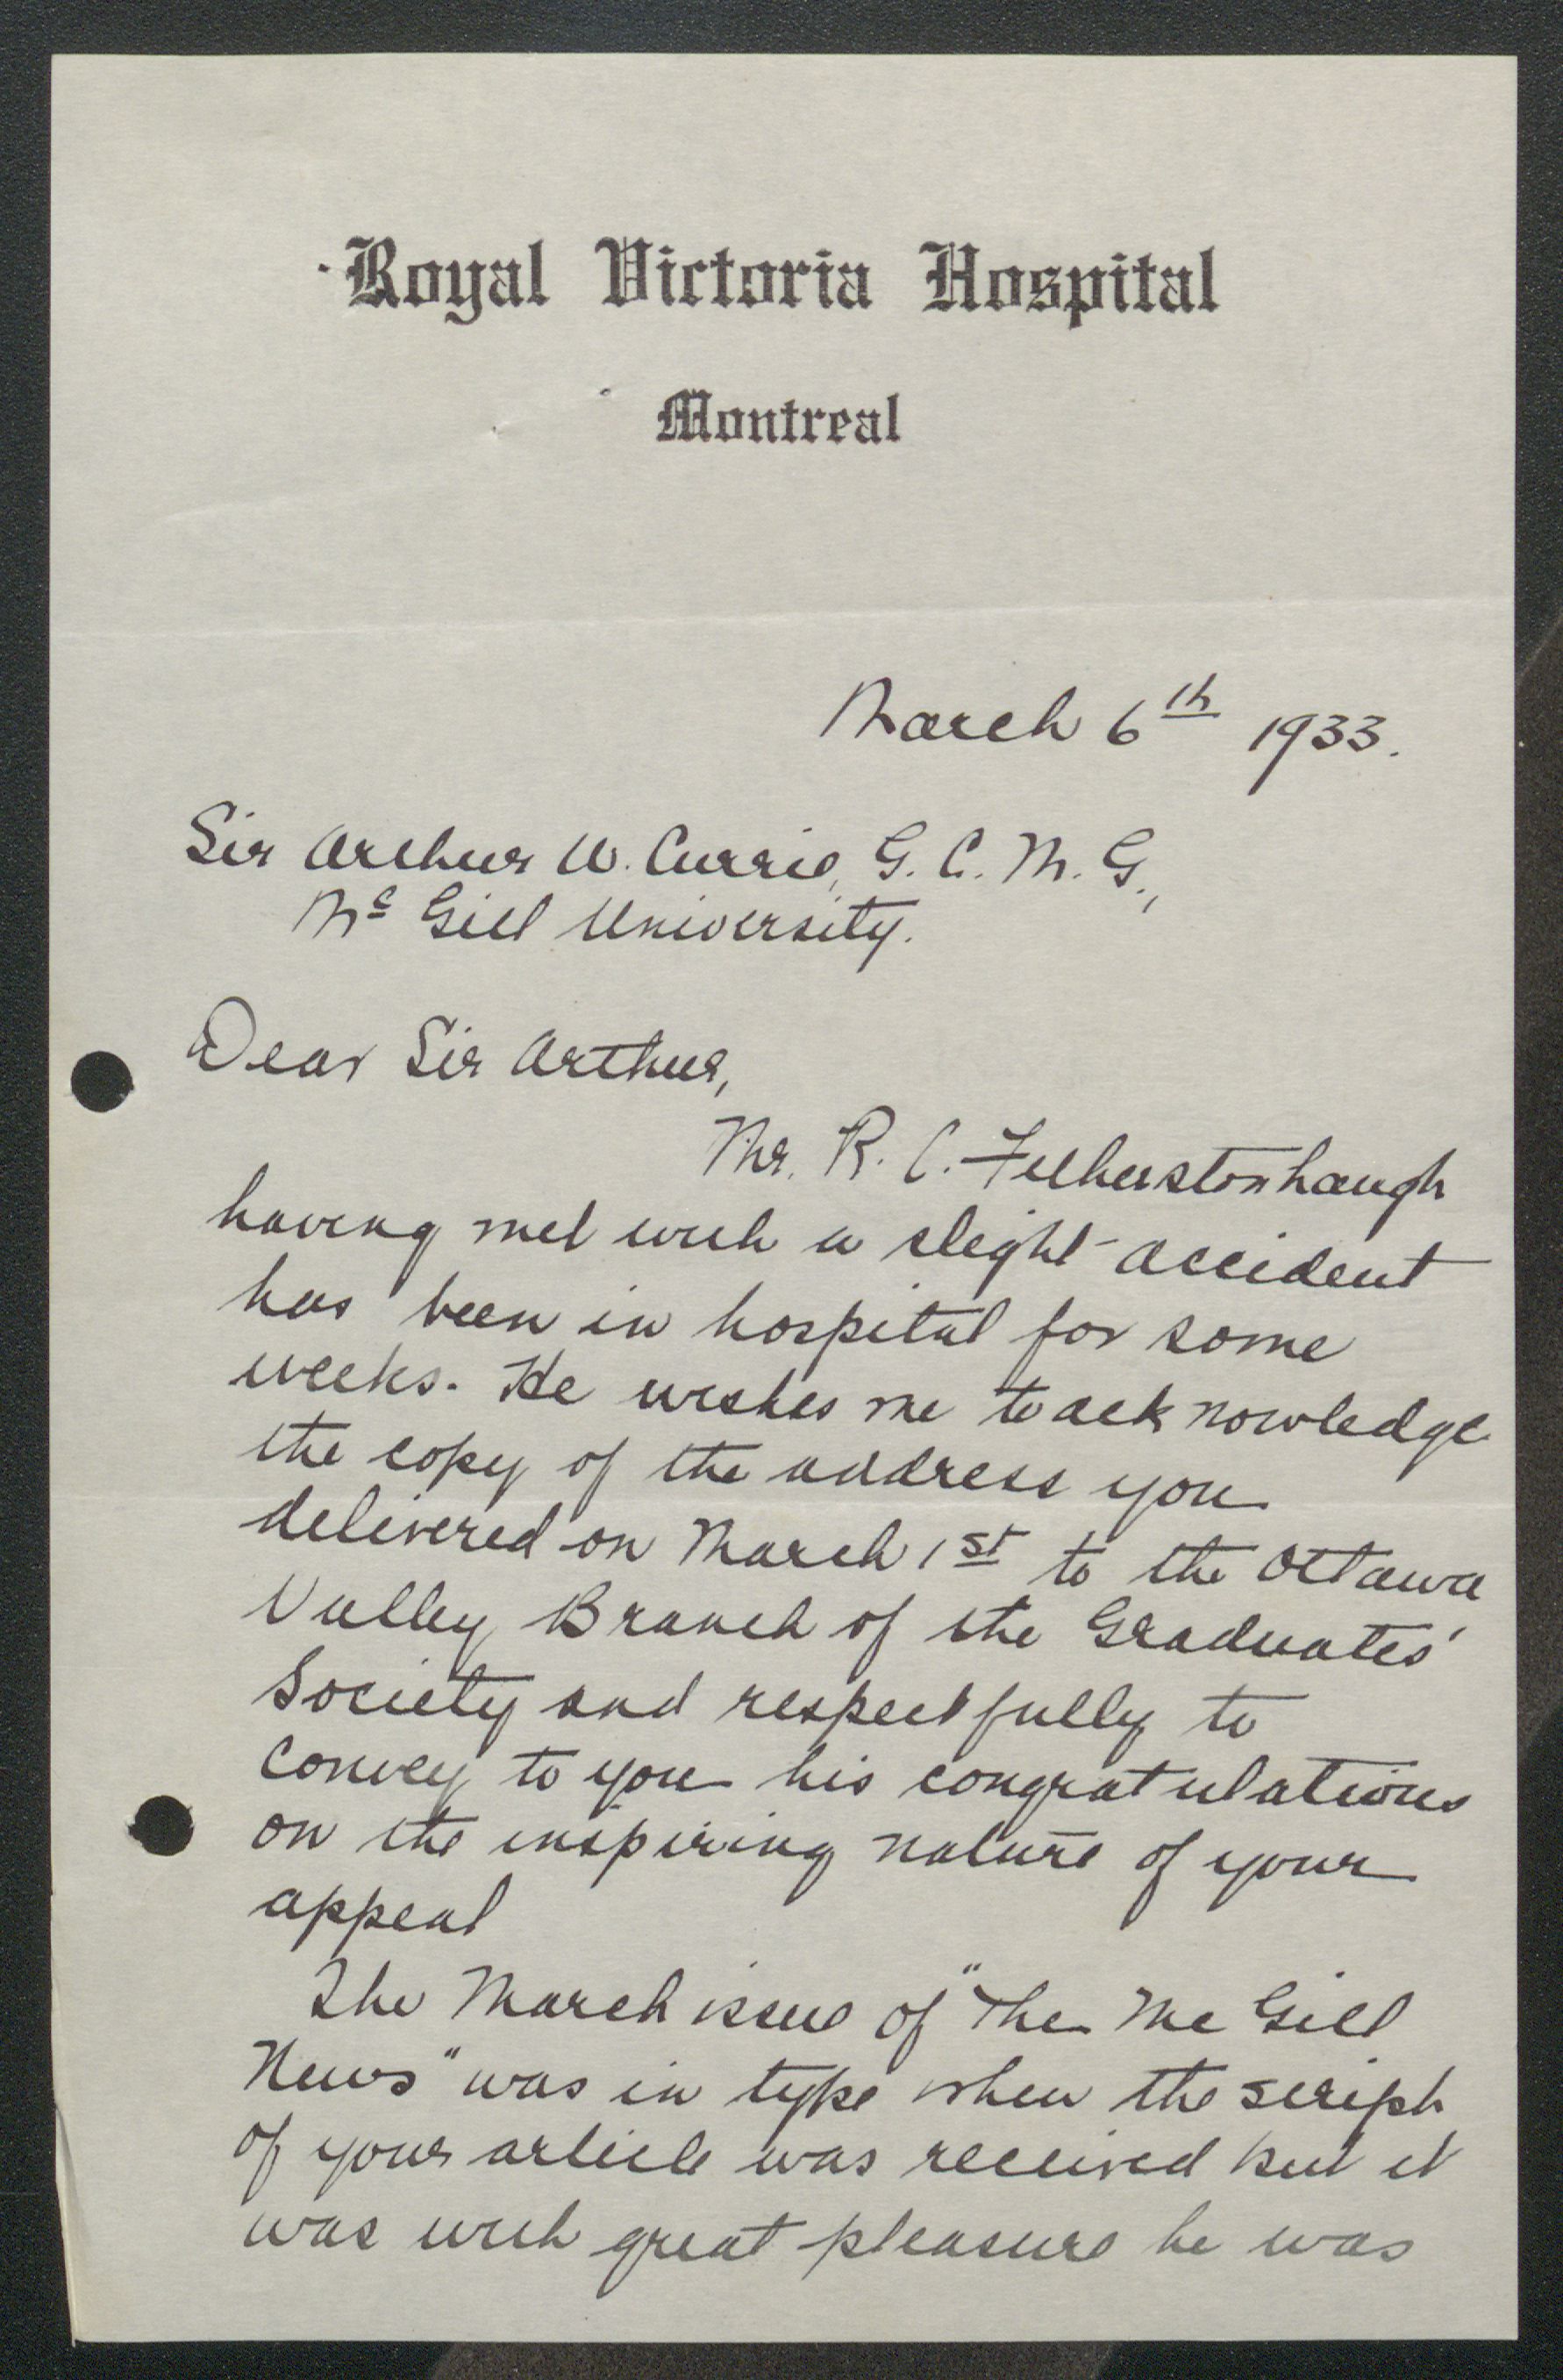 Royal Victoria Hospital
Montreal
March 6th 1933.
Sir Arthur W. Currie, G. C. M. G.,
Mc Gill University.
Dear Sir Arthur,
Mr. R. C. Fetherstonhaugh
having met with a slight accident
has been in hospital for some
weeks. He wishes me to acknowledge
the copy of the address you
delivered on March 1st to the Ottawa
Valley Branch of the Graduates'
Society and respectfully to
convey to you his congratulations
on the inspiring nature of your
appeal
The March issue of "The Mc Gill
News" was in type when the script
of your article was received but it
was with great pleasure he was